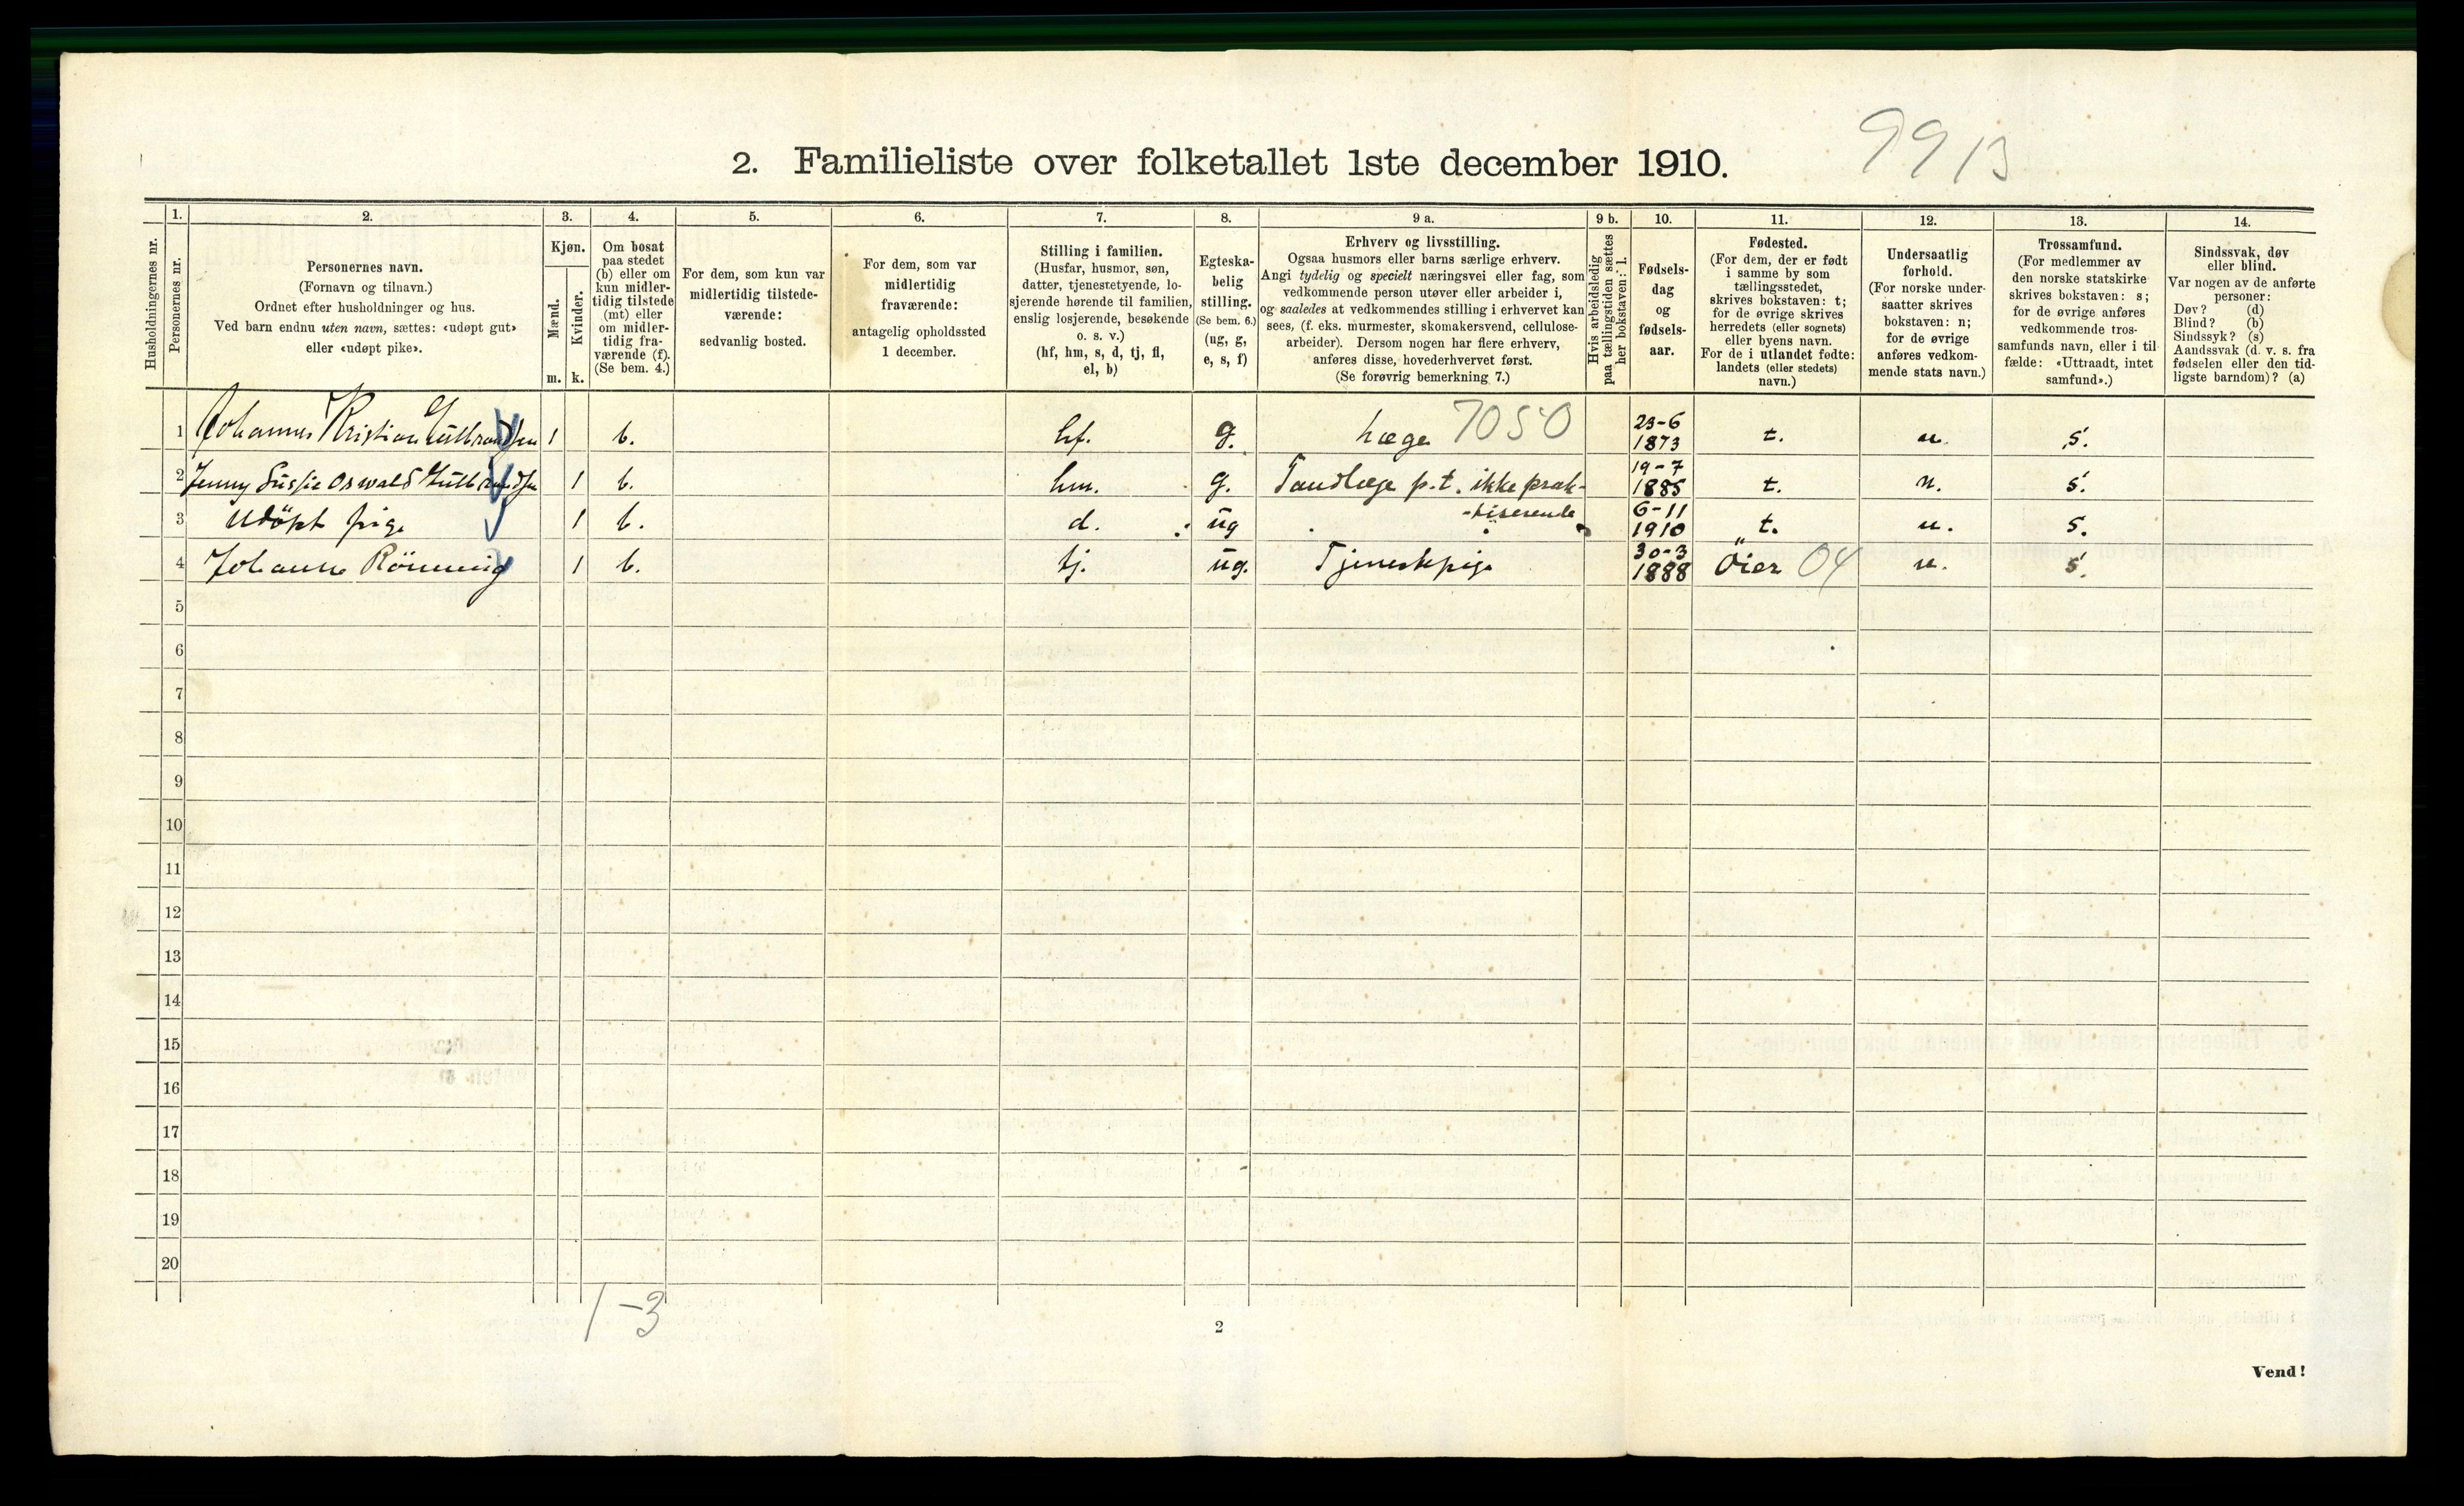 9913
2. Familieliste over folketallet 1ste december 1910.
Husholdningernes nr.
1.
Personernes nr.
2.
Personernes navn.
(Fornavn og tilnavn.)
Ordnet efter husholdninger og hus.
Ved barn endnu uten navn, sættes: «udøpt gut»
eller «udøpt pike».
3.
Kjøn.
Mænd.
m.
Kvinder.
k.
4.
Om bosat
paa stedet
(b) eller om
kun midler-
tidig tilstede
(mt) eller
om midler-
tidig fra-
værende (f).
(Se bem. 4.)
5.
For dem, som kun var
midlertidig tilstede-
værende:
sedvanlig bosted.
6.
For dem, som var
midlertidig
fraværende:
antagelig opholdssted
1 december.
7.
Stilling i familien.
(Husfar, husmor, søn,
datter, tjenestetyende, lo-
sjerende hørende til familien,
enslig losjerende, besøkende
o. s. v.)
(hf, hm, s, d, tj, fl,
el, b)
8.
Egteska-
belig
stilling.
(Se bem. 6.)
(ug, g,
e, s, f)
9 a.
Erhverv og livsstilling.
Ogsaa husmors eller barns særlige erhverv.
Angi tydelig og specielt næringsvei eller fag, som
vedkommende person utøver eller arbeider i,
og saaledes at vedkommendes stilling i erhvervet kan
sees, (f. eks. murmester, skomakersvend, cellulose-
arbeider). Dersom nogen har flere erhverv,
anføres disse, hovederhvervet først.
(Se forøvrig bemerkning 7.)
9 b.
Hvis arbeidsledig
paa tællingstiden sættes
her bokstaven: l.
10.
Fødsels-
dag
og
fødsels-
aar.
11.
Fødested.
(For dem, der er født
i samme by som
tællingsstedet,
skrives bokstaven: t;
for de øvrige skrives
herredets (eller sognets)
eller byens navn.
For de i utlandet fødte:
landets (eller stedets)
navn.)
12.
Undersaatlig
forhold.
(For norske under-
saatter skrives
bokstaven: n;
for de øvrige
anføres vedkom-
mende stats navn.)
13.
Trossamfund.
(For medlemmer av
den norske statskirke
skrives bokstaven: s;
for de øvrige anføres
vedkommende tros-
samfunds navn, eller i til-
fælde: «Uttraadt, intet
samfund».)
14.
Sindssvak, døv
eller blind.
Var nogen av de anførte
personer:
Døv? (d)
Blind? (b)
Sindssyk? (s)
Aandssvak (d. v. s. fra
fødselen eller den tid-
ligste barndom)? (a)
1 Johannes Kristian Gulbrandsen 1 b. hf. g. Læge 7050 23-6 1873 t. n. s.
2 Jenny Oswald Gulbrandsen 1 b. hm. g. Tandlæge p.t. ikke prak- 19-7 1885 t. n. s.
-tiserende
3 Udöpt pige 1 b. d. ug 6-11 1910 t. n. s.
4 Johanne Rönning 1 b. tj. ug. Tjenestepige 30-3 1888 Öier 04 n. s.
5
6
7
8
9
10
11
12
13
14
15
16
17
18
19
20
1-3
2
Vend!